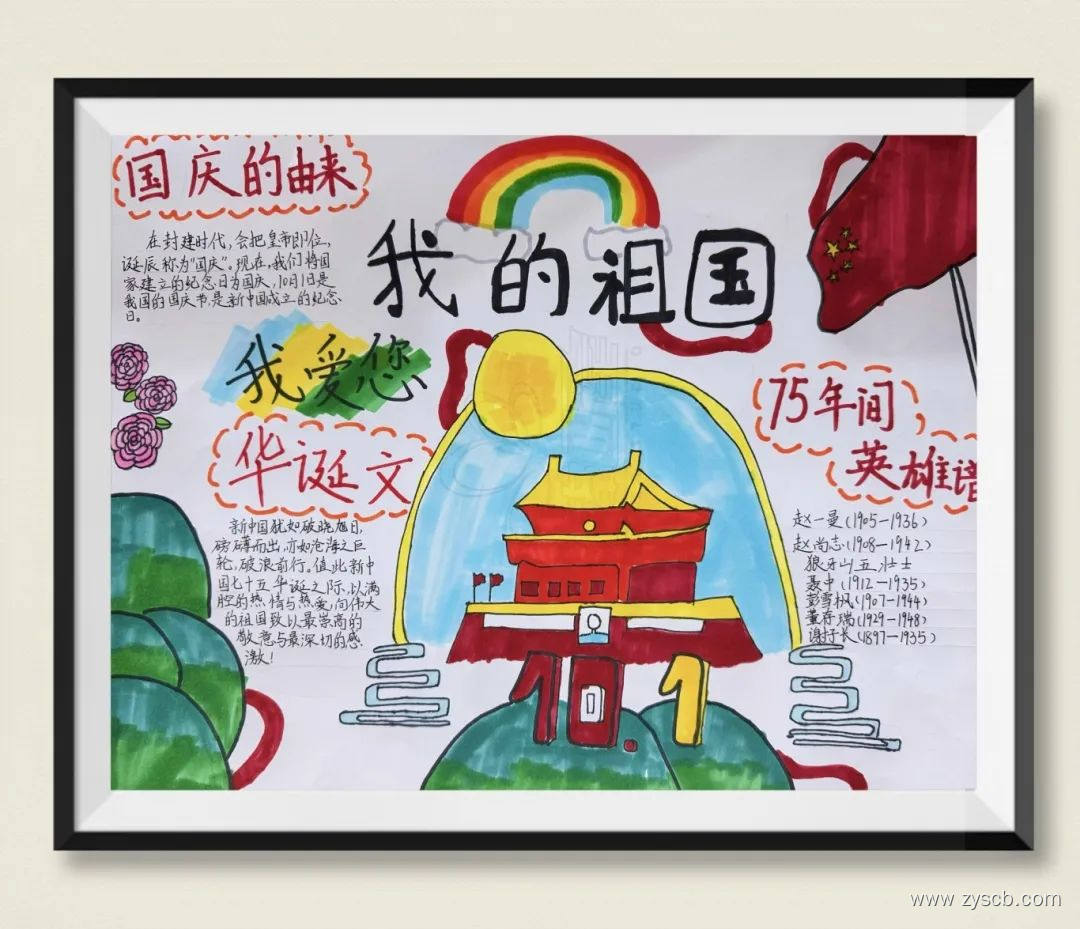 国庆的由来
在封建时代，会把皇帝即位，
诞辰称为“国庆”。现在，我们将国
家建立的纪念日为国庆，10月1日是
我国的国庆节，是新中国成立的纪念
日。
我的祖国
我爱您
华诞文
新中国犹如破晓旭日，
磅礴而出，亦如沧海之巨
轮，破浪前行。值此新中
国七十五华诞之际，以满
腔的热情与热爱，向伟大
的祖国致以最崇高的
敬意与最深切的感
激！
75年间，
英雄谱
赵一曼（1905—1936）
赵尚志（1908—1942）
狼牙山五壮士
聂中（1912—1935）
彭雪枫（1907—1944）
董存瑞（1929—1948）
谢子长（1897—1935）
10.1
www.zyscb.com